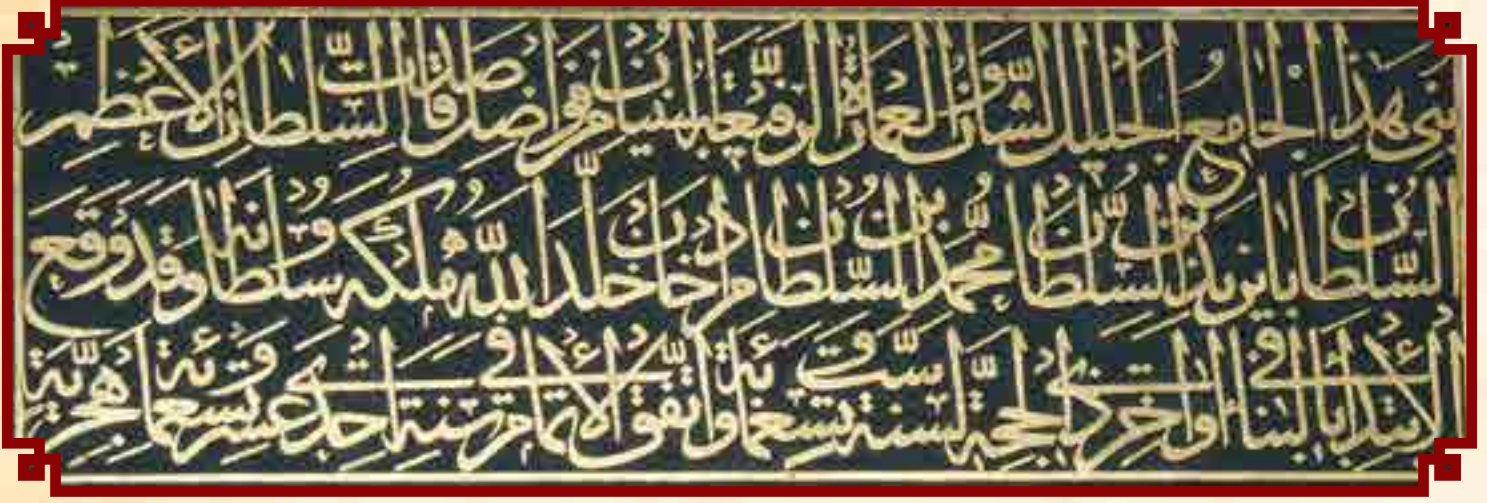 بنى هذا الجامع الجليل الشان والعمارة الرفيعة البنيان من فواضل صدقات السلطان الأعظم
السلطان بايزيد بن السلطان محمد بن السلطان مراد خان خلد الله ملكه وسلطانه وقد وقع
الابتداء بالبناء في أواخر ذي الحجة لسنة ست وتسعمائة واتفق الاتمام في سنة إحدى عشر وتسعمائة هجرية